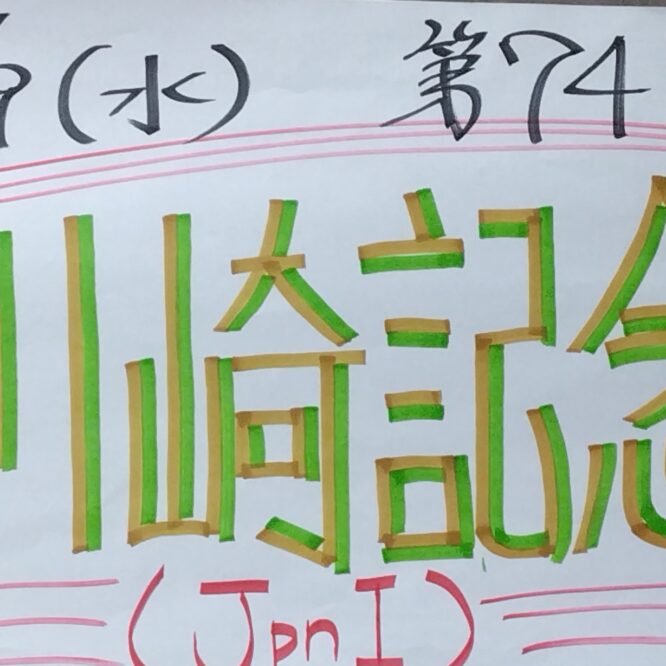 (水) 第74
川崎記念
(JpnI)